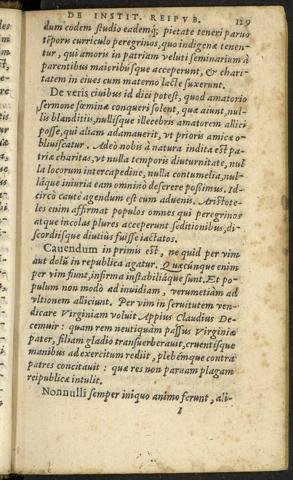 DE INSTIT. REIPVB. 129
dum eodem studio eademq; pietate teneri paruo
tẽporis curriculo peregrinos, quo indigenæ tenen-
tur, qui amoris in patriam veluti seminarium à
parentibus maioribúsque acceperunt, & chari-
tatem in ciues cum materno lacte suxerunt.
De veris ciuibus id dici potest, quod amatorio
sermone fœminæ conqueri solent, quæ aiunt, nul-
lis blanditiis, nullísque illecebris amatorem allici
posse, qui aliam adamauerit, vt prioris amicæ o-
bliuiscatur. Adeò nobis à natura indita est pa-
triæ charitas, vt nulla temporis diuturnitate, nul
la locorum intercapedine, nulla contumelia, nul-
láque iniuria eam omninò deserere possimus. Id-
circò cautè agendum est cum aduenis. Aristote-
les enim affirmat populos omnes qui peregrinos
atque incolas plures acceperunt seditionibus, di-
scordiísque diutius fuisse iactatos.
Cauendum in primis est, ne quid per vim
aut dolũ in republica agatur. Quæcúnque enim
per vim fiunt, infirma instabiliáque sunt. Et po-
pulum non modò ad inuidiam, verumetiam ad
vltionem alliciunt. Per vim in seruitutem ven-
dicare Virginiam voluit Appius Claudius De-
cemuir: quam rem neutiquàm passus Virginiæ
pater, filiam gladio transuerberauit, cruentísque
manibus ad exercitum rediit, plebémque contra
patres concitauit: quæ res non paruam plagam
reipublicæ intulit.
Nonnulli semper iniquo animo ferunt, ali-
I